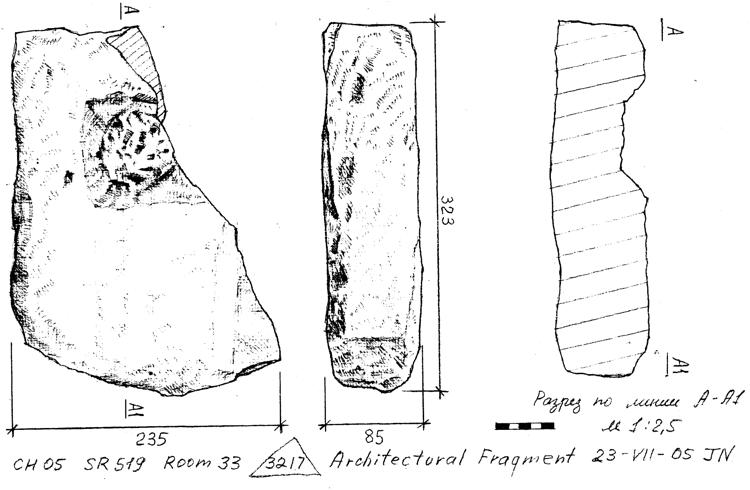 A
A
323
A1
A1
235
85
Разрез по линии А-А1
М 1:2,5
CH 05 SR 519 Room 33 3217 Architectural Fragment 23-VII-05 JN